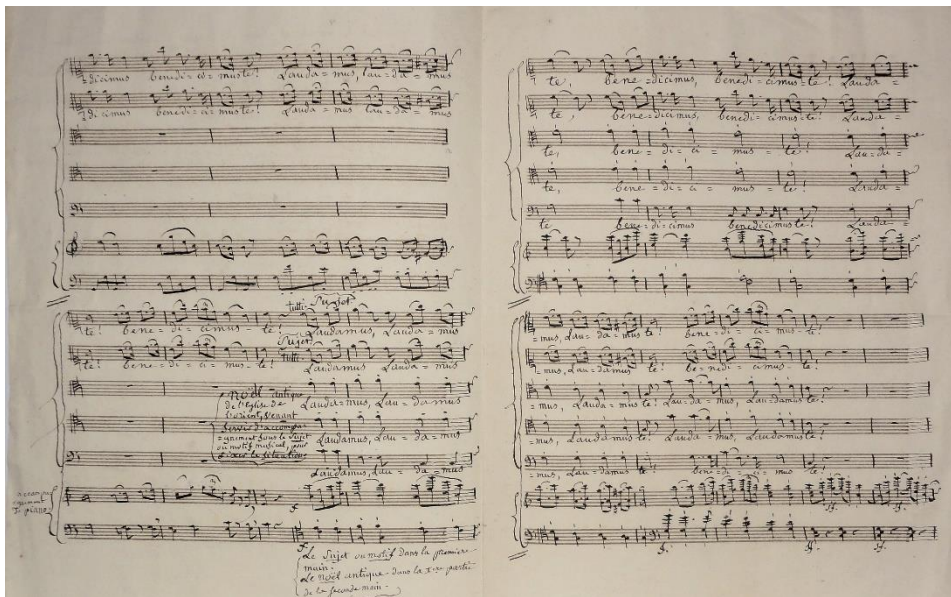 =dicimus benedi=ci=muste! Lauda=mus, lau=da=mus
=di cimus benedi=ci=muste! Lauda=mus lau=da=mus
tutti. Sujet
te! bene=di=cimus=te! Laudamus, Lauda=mus
Sujet
tutti
te! bene=di=cimus=te! Laudamus Lauda=mus
noël antique
de l'Eglise de
l'orient, venant
servir d'accompa
=gnement sous le Sujet
ou motif musical, pour
Lauda=mus, Lau=damus
Laudamus, Lau=da=mus
Laudamus, Lau=da=mus
accompa
gnement
piano
Le Sujet ou motif dans la première
main.
Le noël antique dans la 1ere partie
de la seconde main.
te, bene=dicimus, benedicimus=te! Lauda=
te, bene=dicimus, benedi=cimus=te! Lauda=
te, bene=di=ci=mus=te! Lau=da=
te, bene=di=ci=mus=te! Lauda=
te bene=di=cimus benedicimuste! Lauda=
=mus, Lau=da=mus te! bene=di=ci=mus=te!
=mus, Lau=damus te! bene=di=cimus=te!
=mus, Lauda=muste! Lau=da=mus, Laudamuste!
=mus, Laudamuste! Lauda=mus, Laudamuste!
=mus, Lau=damus te! bene=di=ci=mus te!